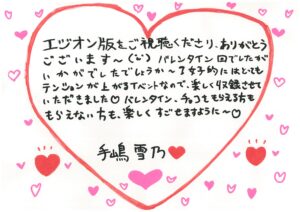 エヅオン版をご視聴くださり、ありがとう
ございます〜(´▽`) バレンタイン回でしたが
いかがでしたでしょうか〜？女子的にはとても
テンションが上がるイベントなので、楽しく収録させて
いただきました♡ バレンタイン、チョコをもらえる方も
もらえない方も、楽しくすごせますように〜♡
手嶋雪乃♥